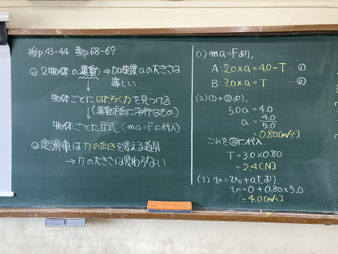 p43-44 p68-69
Q 2物体の運動⇒加速度aの大きさは
等しい
物体ごとにはたらく力を見つける
↓(運動方向に平行なもの)
物体ごとに立式(ma=Fに代入)
Q 定滑車は力の向きを変える道具
→力の大きさは変わらない
(1) ma=Fより,
A:2.0×a=4.0-T ①
B:3.0×a=T ②
(2) ①+②より,
5.0a=4.0
a=4.0/5.0
=0.80[m/s²]
これを②に代入
T=3.0×0.80
=2.4[N]
(3) v=v₀+atより,
v=0+0.80×5.0
=4.0[m/s]